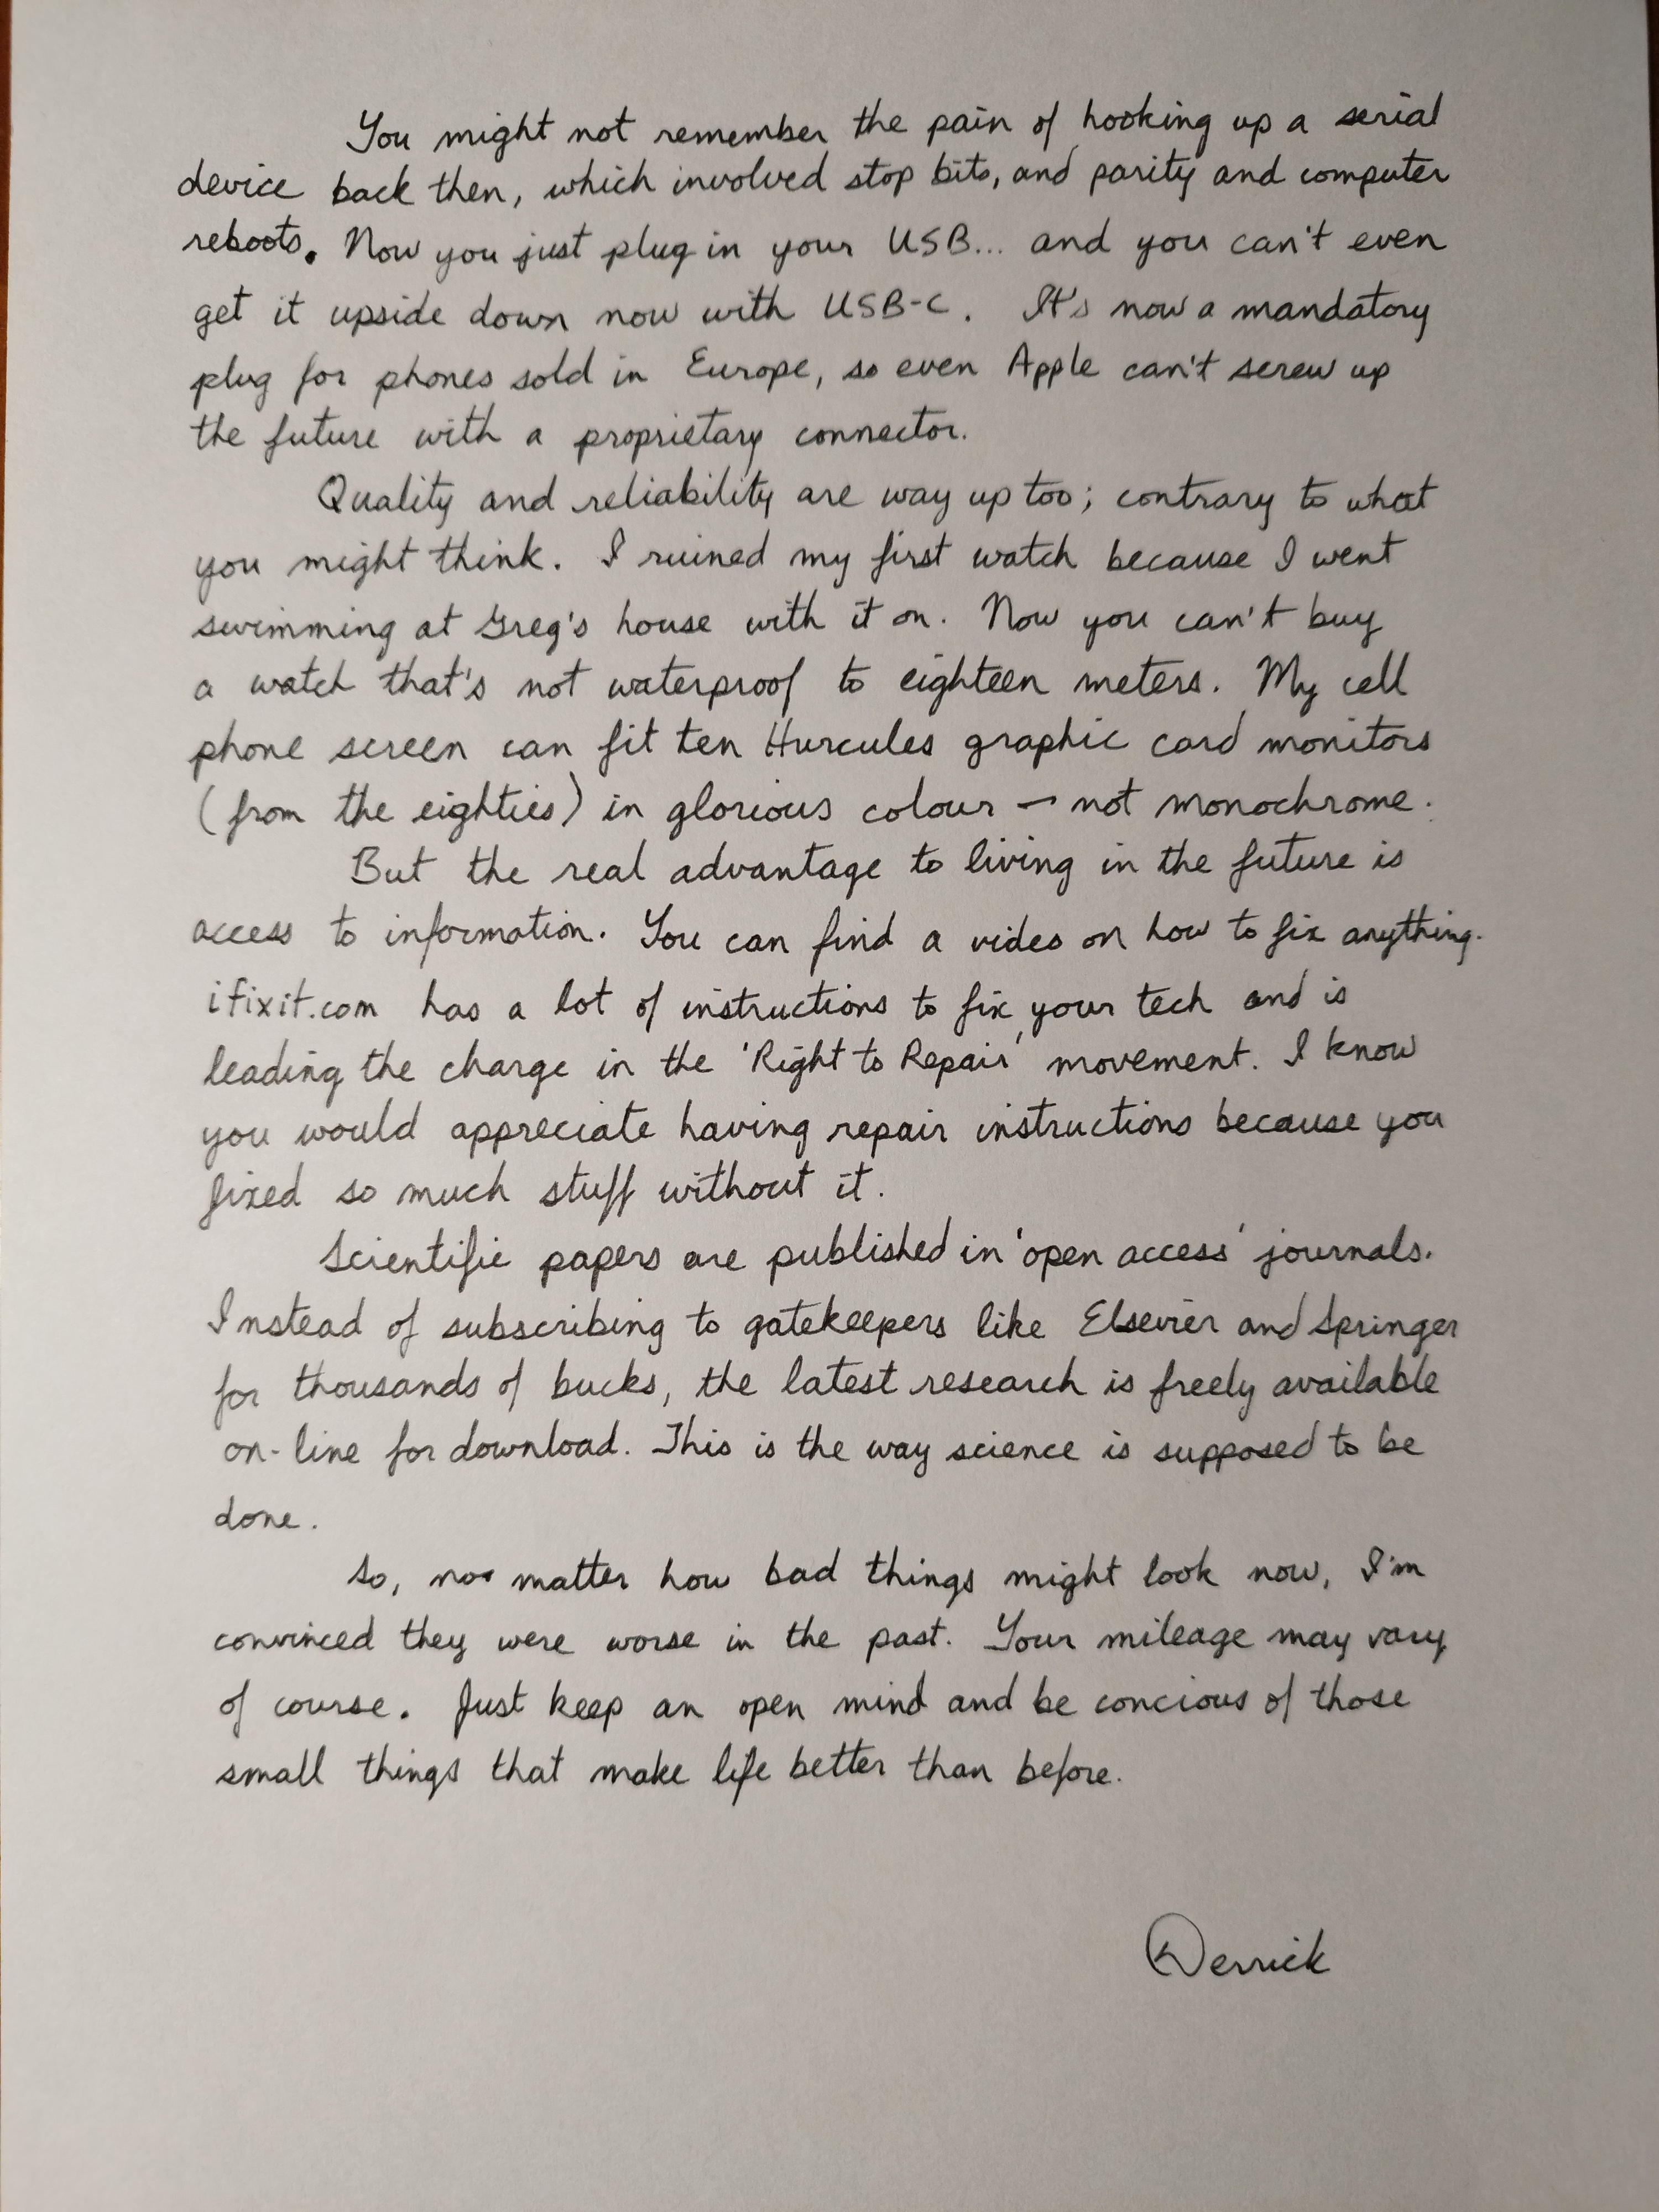 You might not remember the pain of hooking up a serial
device back then, which involved stop bits, and parity and computer
reboots. Now you just plug in your USB... and you can't even
get it upside down now with USB-C. It's now a mandatory
plug for phones sold in Europe, so even Apple can't screw up
the future with a proprietary connector.
Quality and reliability are way up too; contrary to what
you might think. I ruined my first watch because I went
swimming at Greg's house with it on. Now you can't buy
a watch that's not waterproof to eighteen meters. My cell
phone screen can fit ten Hurcules graphic card monitors
(from the eighties) in glorious colour - not monochrome.
But the real advantage to living in the future is
access to information. You can find a video on how to fix anything.
ifixit.com has a lot of instructions to fix your tech and is
leading the charge in the 'Right to Repair' movement. I know
you would appreciate having repair instructions because you
fixed so much stuff without it.
Scientific papers are published in 'open access' journals.
Instead of subscribing to gatekeepers like Elsevier and Springer
for thousands of bucks, the latest research is freely available
on-line for download. This is the way science is supposed to be
done.
So, no matter how bad things might look now, I'm
convinced they were worse in the past. Your mileage may vary
of course. Just keep an open mind and be concious of those
small things that make life better than before.
Derrick